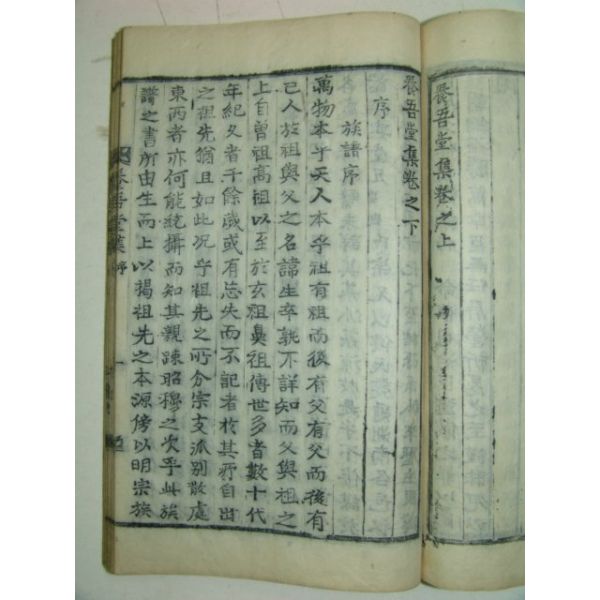 養吾堂集卷之上
養吾堂集卷之下
序
族譜序
萬物本乎天人本乎祖有祖而後有父有父而後有
己人於祖與父之名諱生卒孰不詳知而父與祖之
上自曾祖高祖以至於玄祖鼻祖傳世多者數十代
年紀久者千餘歲或有忘失而不記者於其所自出
之祖先猶且如此况乎祖先之所分宗支派別散處
東西者亦何能統攝而知其親踈昭穆之次乎此族
譜之書所由生而上以揭祖先之本源傍以明宗族
養吾堂集 序 一